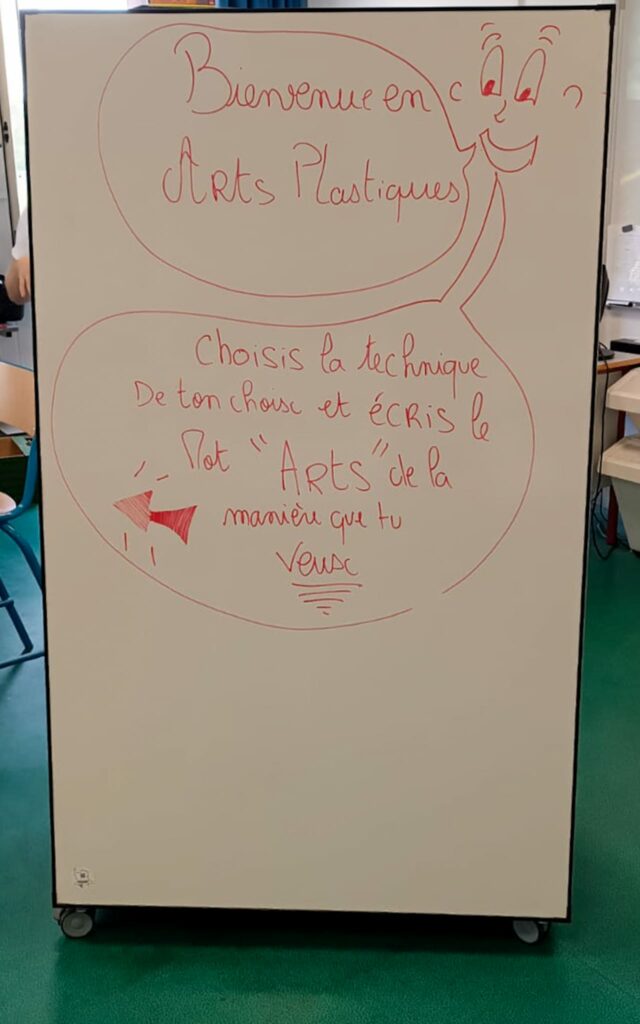 Bienvenue en
Arts Plastiques
Choisis la technique
De ton choix et ÉCRis le
Mot "ARTS" de la
manière que tu
Veux